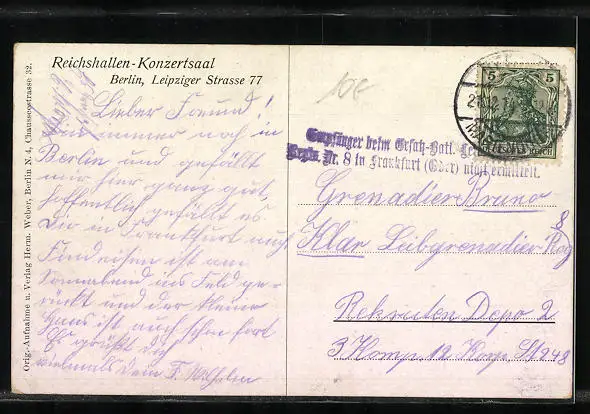 Orig.-Aufnahme u. Verlag Herm. Weber, Berlin N. 4, Chausseestrasse 32.
Reichshallen-Konzertsaal
Berlin, Leipziger Strasse 77
Lieber Freund!
immer noch in
Berlin und gefällt
mir hier ganz gut,
hoffentlich gefällt es
Dir in Frankfurt auch
am
Sonnabend ins Feld ge-
rückt und der kleine
Hans ist auch schon fort
Es grüßt dich
vielmals Dein F.
5 5
Empfänger beim Ersatz-Batl.
Regts. Nr. 8 in Frankfurt (Oder) nicht ermittelt.
Grenadier Bruno
Klar Leibgrenadier Reg 8
Rekruten Depo 2
3 Komp. 12 Korp. St 248